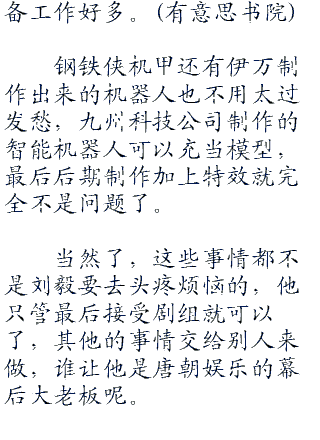 备工作好多。(有意思书院)
钢铁侠机甲还有伊万制
作出来的机器人也不用太过
发愁，九州科技公司制作的
智能机器人可以充当模型，
最后后期制作加上特效就完
全不是问题了。
当然了，这些事情都不
是刘毅要去头疼烦恼的，他
只管最后接受剧组就可以
了，其他的事情交给别人来
做，谁让他是唐朝娱乐的幕
后大老板呢。